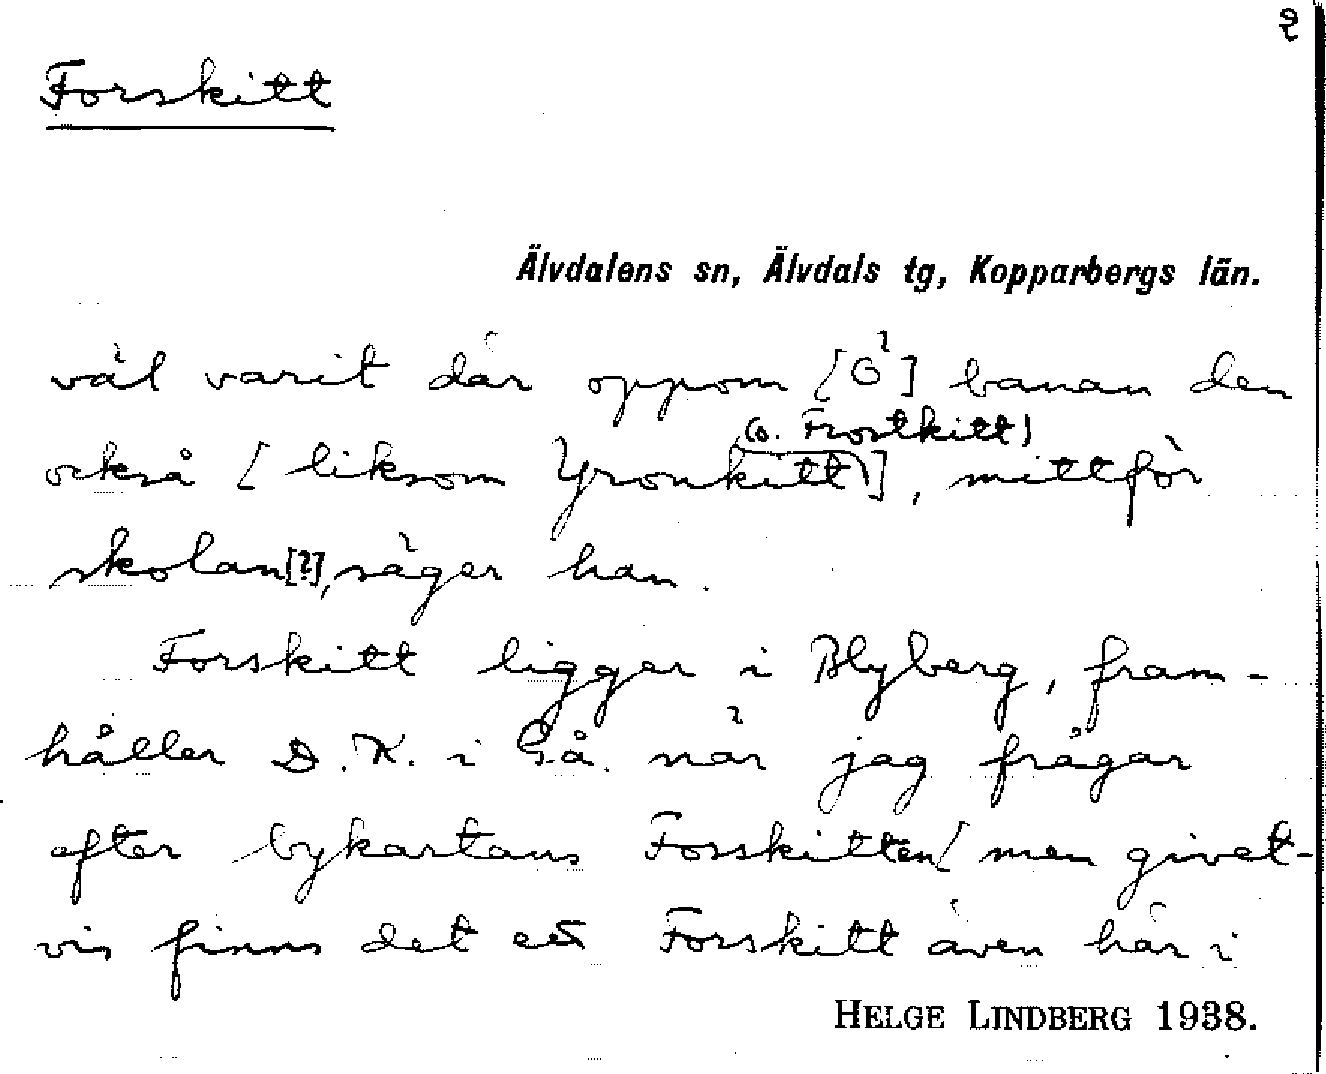 2
Forskitt
Älvdalens sn, Älvdals tg, Kopparbergs län.
väl varit där oppom [Ö] banan den
(o. Frostkitt)
också [liksom Yronkitt], mittför
skolan[?], säger han.
Forskitt ligger i Blyberg, fram-
håller D. K. i Gå. när jag frågar
efter bykartans Forskitten[men givet-
vis finns det ett Forskitt även här i
HELGE LINDBERG 1938.